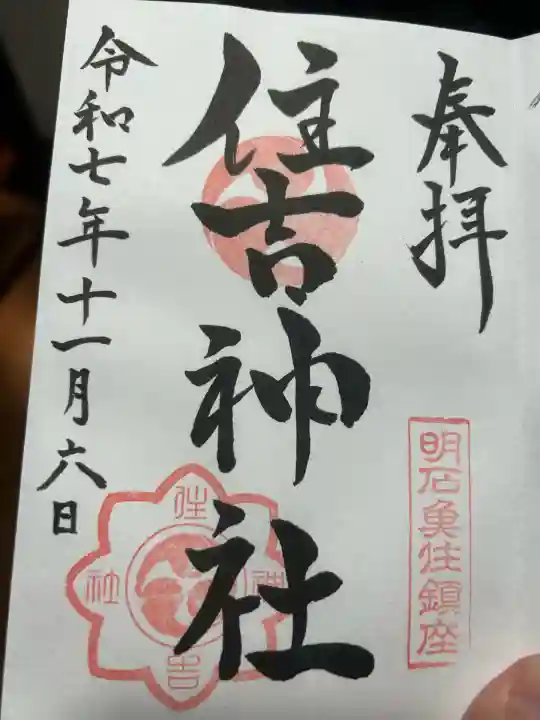 奉拝
明石魚住鎮座
住吉神社
住吉神社
令和七年十一月六日